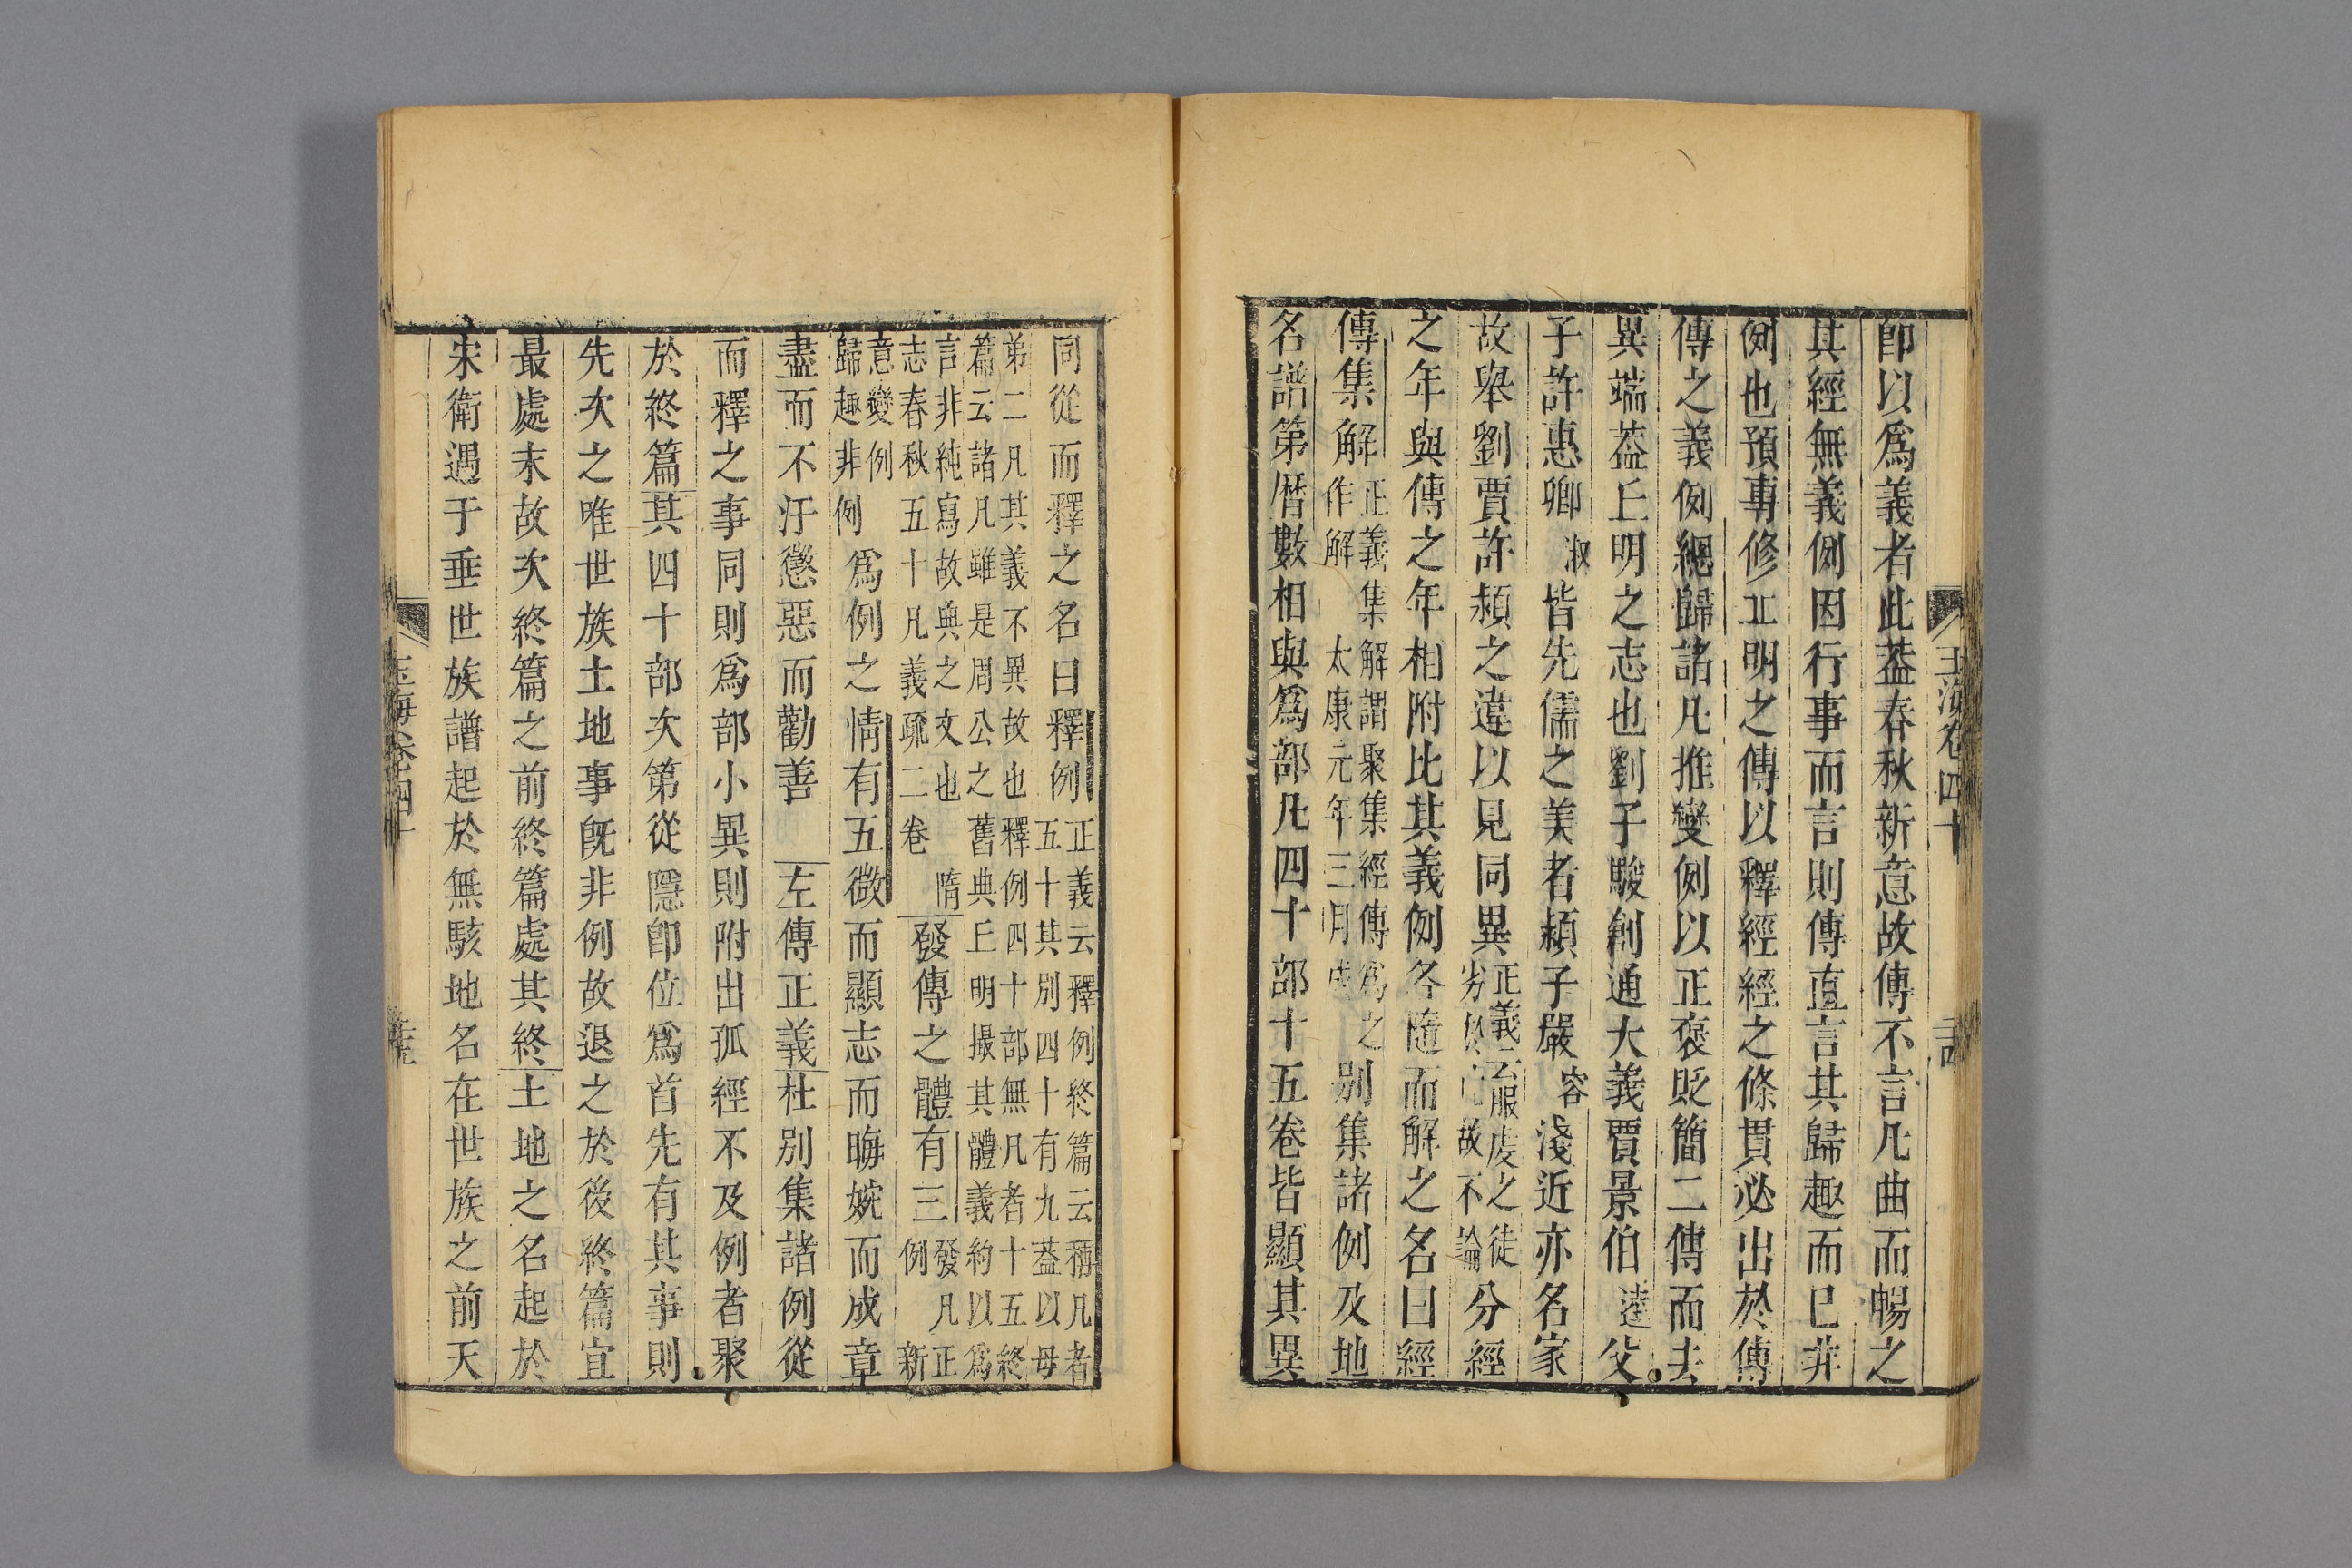 玉海卷四十
即以爲義者此葢春秋新意故傳不言凡曲而暢之
其經無義例因行事而言則傳直言其歸趣而已非
例也預專修丘明之傳以釋經經之條貫必出於傳
傳之義例總歸諸凡推變例以正褒貶簡二傳而去
異端葢丘明之志也劉子駿創通大義賈景伯逵父
子許惠卿淑皆先儒之美者穎子嚴容淺近亦名家
故舉劉賈許穎之違以見同異
正義云服虔之徒
劣於故不論
分經
之年與傳之年相附比其義例各隨而解之名曰經
傳集解
正義集解謂聚集經傳爲之
作解 太康元年三月
别集諸例及地
名譜第曆數相與爲部凡四十部十五卷皆顯其異
同從而釋之名曰釋例
正義云釋例終篇云稱凡者
五十其別四十有九葢以母
弟二凡其義不異故也釋例四十部無凡者十五終
篇云諸凡雖是周公之舊典丘明撮其體義約以爲
言非純寫故典之文也 隋
志春秋五十凡義疏二卷
發傳之體有三
發凡正
例 新
意變例
歸趣非例
爲例之情有五微而顯志而晦婉而成章
盡而不汙懲惡而勸善 左傳正義杜别集諸例從
而釋之事同則爲部小異則附出孤經不及例者聚
於終篇其四十部次第從隱即位爲首先有其事則
先次之唯世族土地事旣非例故退之於後終篇宜
最處末故次終篇之前終篇處其終土地之名起於
宋衛遇于垂世族譜起於無駭地名在世族之前天
玉海卷四十